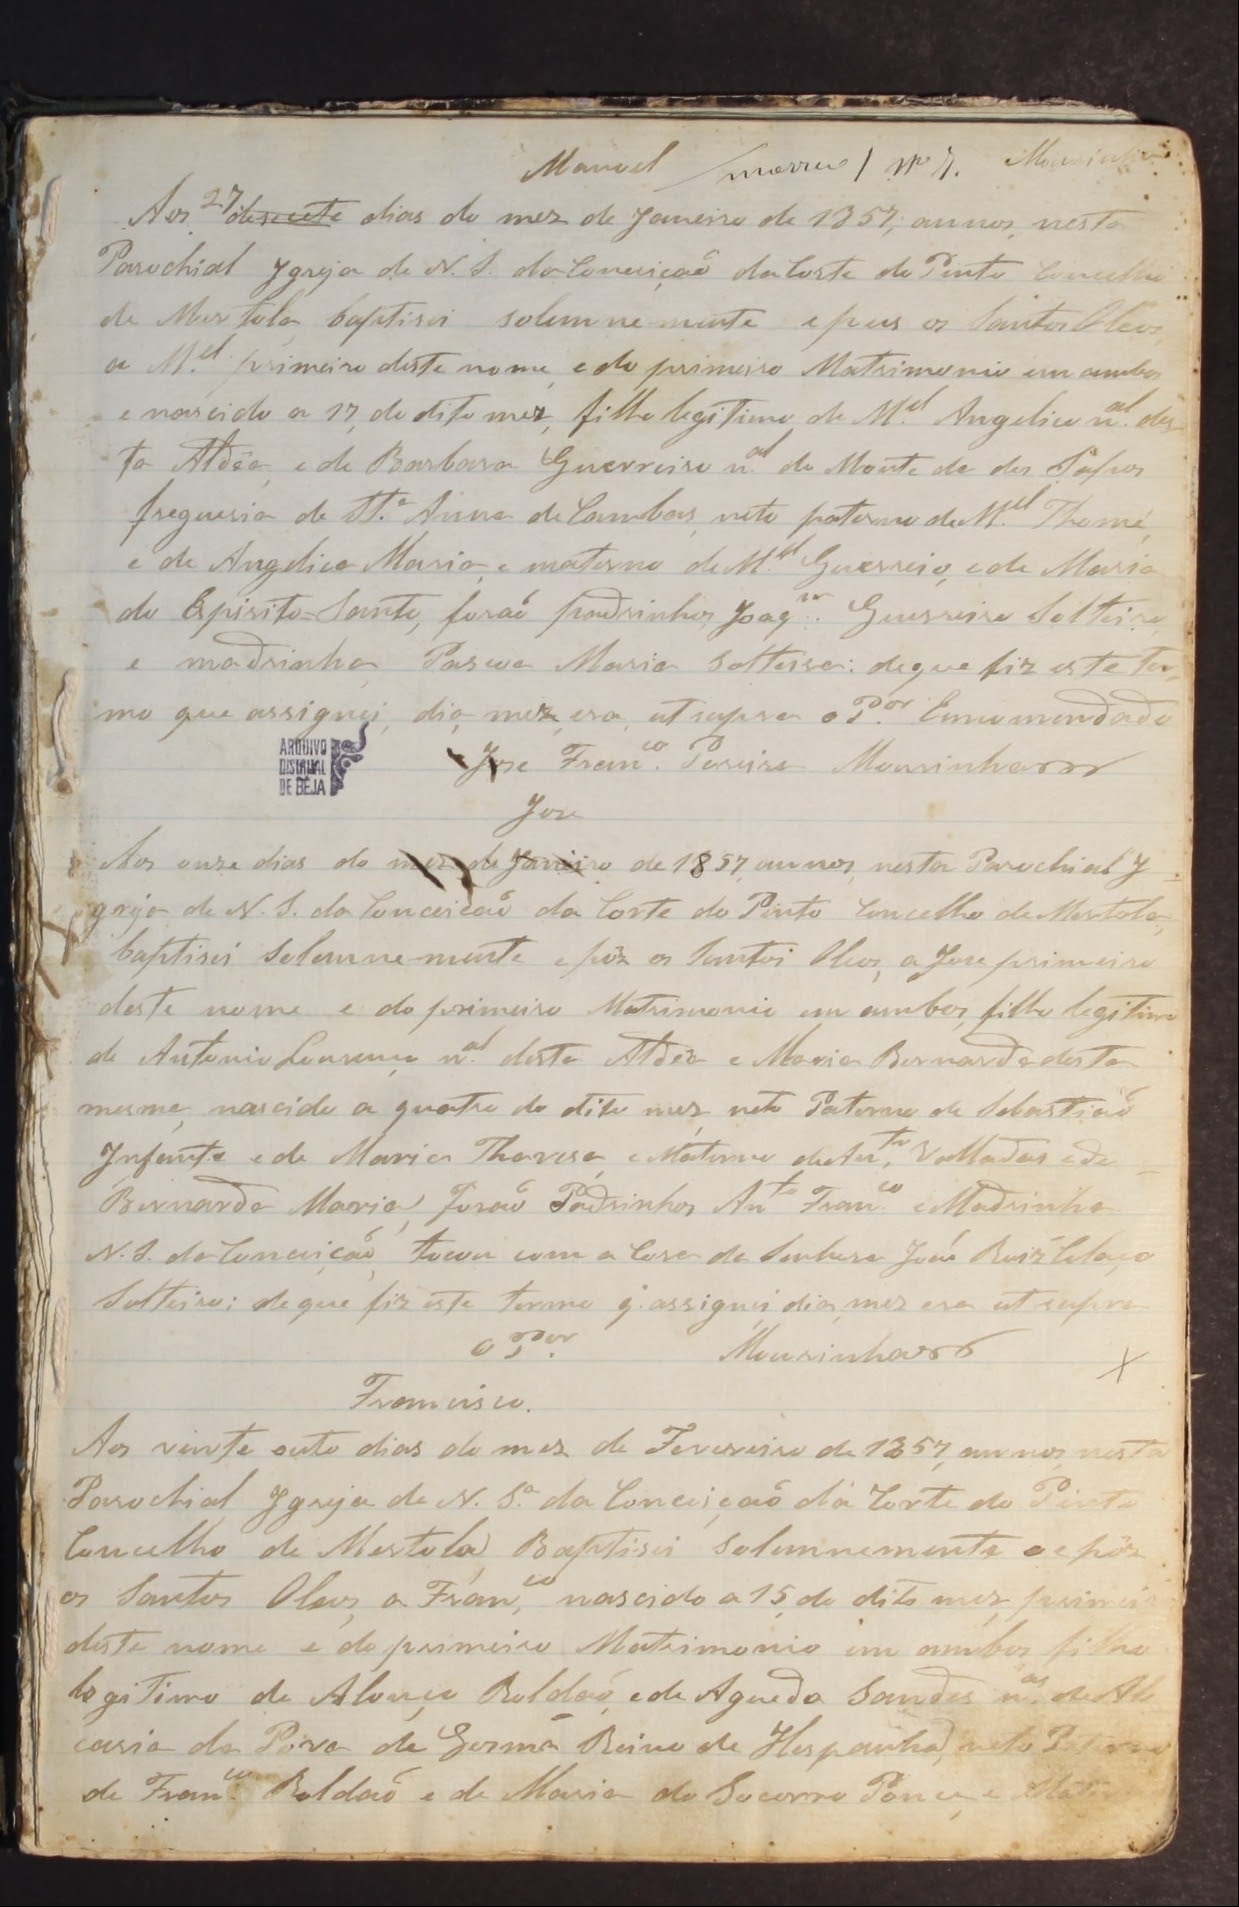 Manuel / morreu / Nº 7. Mousinho
Aos 27 desasete dias do mez de Janeiro de 1857, annos, nesta
Parochial Ygreja de N. S. da Conceiçaõ da Corte do Pinto Concelho
de Mertola baptisei solemnemente e pus os Santos Oleos,
a M.el primeiro deste nome, e do primeiro Matrimonio em ambos
e nascido a 17, do dito mez, filho legitimo de M.el Angelico n.al des
ta Aldêa, e de Barbara Guerreiro n.al do Monte de dos
freguesia de St.ª Anna de Cambas, neto paterno de M.el Thomé,
e de Angelica Maria, e materno de M.el Guerreio, e de Maria
do Espirito-Santo, foraõ padrinhos Joaq.m Guerreiro Solteiro
e madrinha Pascoa Maria Solteira: de que fiz este ter
mo que assignei, dia, mez, era, ut supra o P.or Encomendado
ARQUIVO
DISTRITAL
DE BEJA
Jose Fran.co Pereira Mousinho
Jose
Aos onze dias do mez de Janeiro de 1857, annos, nesta Parochial Y
greja de N. S. da Conceicaõ da Corte do Pinto Concelho de Mertola,
baptisei Solemne-mente e pôz os Santos Oleos, a Jose primeiro
deste nome e do primeiro Matrimonio em ambos, filho legitimo
de Antonio Lourenço n.al desta Aldêa e Maria Bernarda desta
mesma, nascido a quatro do dito mez, neto Paterno de Sebastiaõ
Infante e de Maria Theresa, e Materno de An.to Valladas e de
Bernarda Maria, foraõ Padrinhos An.to Fran.co e Madrinha
N. S. da Conceiçaõ, tocou com a Coroa da Senhora José Roiz Colaço
Solteiro: de que fiz este termo q. assignei dia, mez era ut supra
O P.or Mousinho
Francisco.
Aos vinte outo dias do mez de Fevereiro de 1857, annos nesta
Parochial Ygreja de N. S.ª da Conceiçaõ da Corte do Pinto
Concelho de Mertola, Baptisei Solemnemente e pôz
os Santos Oleos, a Fran.co, nascido a 15, do dito mez, primeiro
deste nome e do primeiro Matrimonio em ambos filho
legitimo de Alonço Roldaõ, e de Agueda n.as de Al
caria da Reino de Hespanha, neto Paterno
de Fran.co Roldaõ e de Maria do Socorro Ponce, e Mater